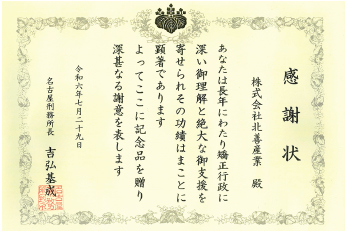 感謝状
株式会社北善産業 殿
あなたは長年にわたり矯正行政に
深い御理解と絶大な御支援を
寄せられその功績はまことに
顕著であります
よってここに記念品を贈り
深甚なる謝意を表します
令和六年七月二十九日
名古屋刑務所長 吉弘基成